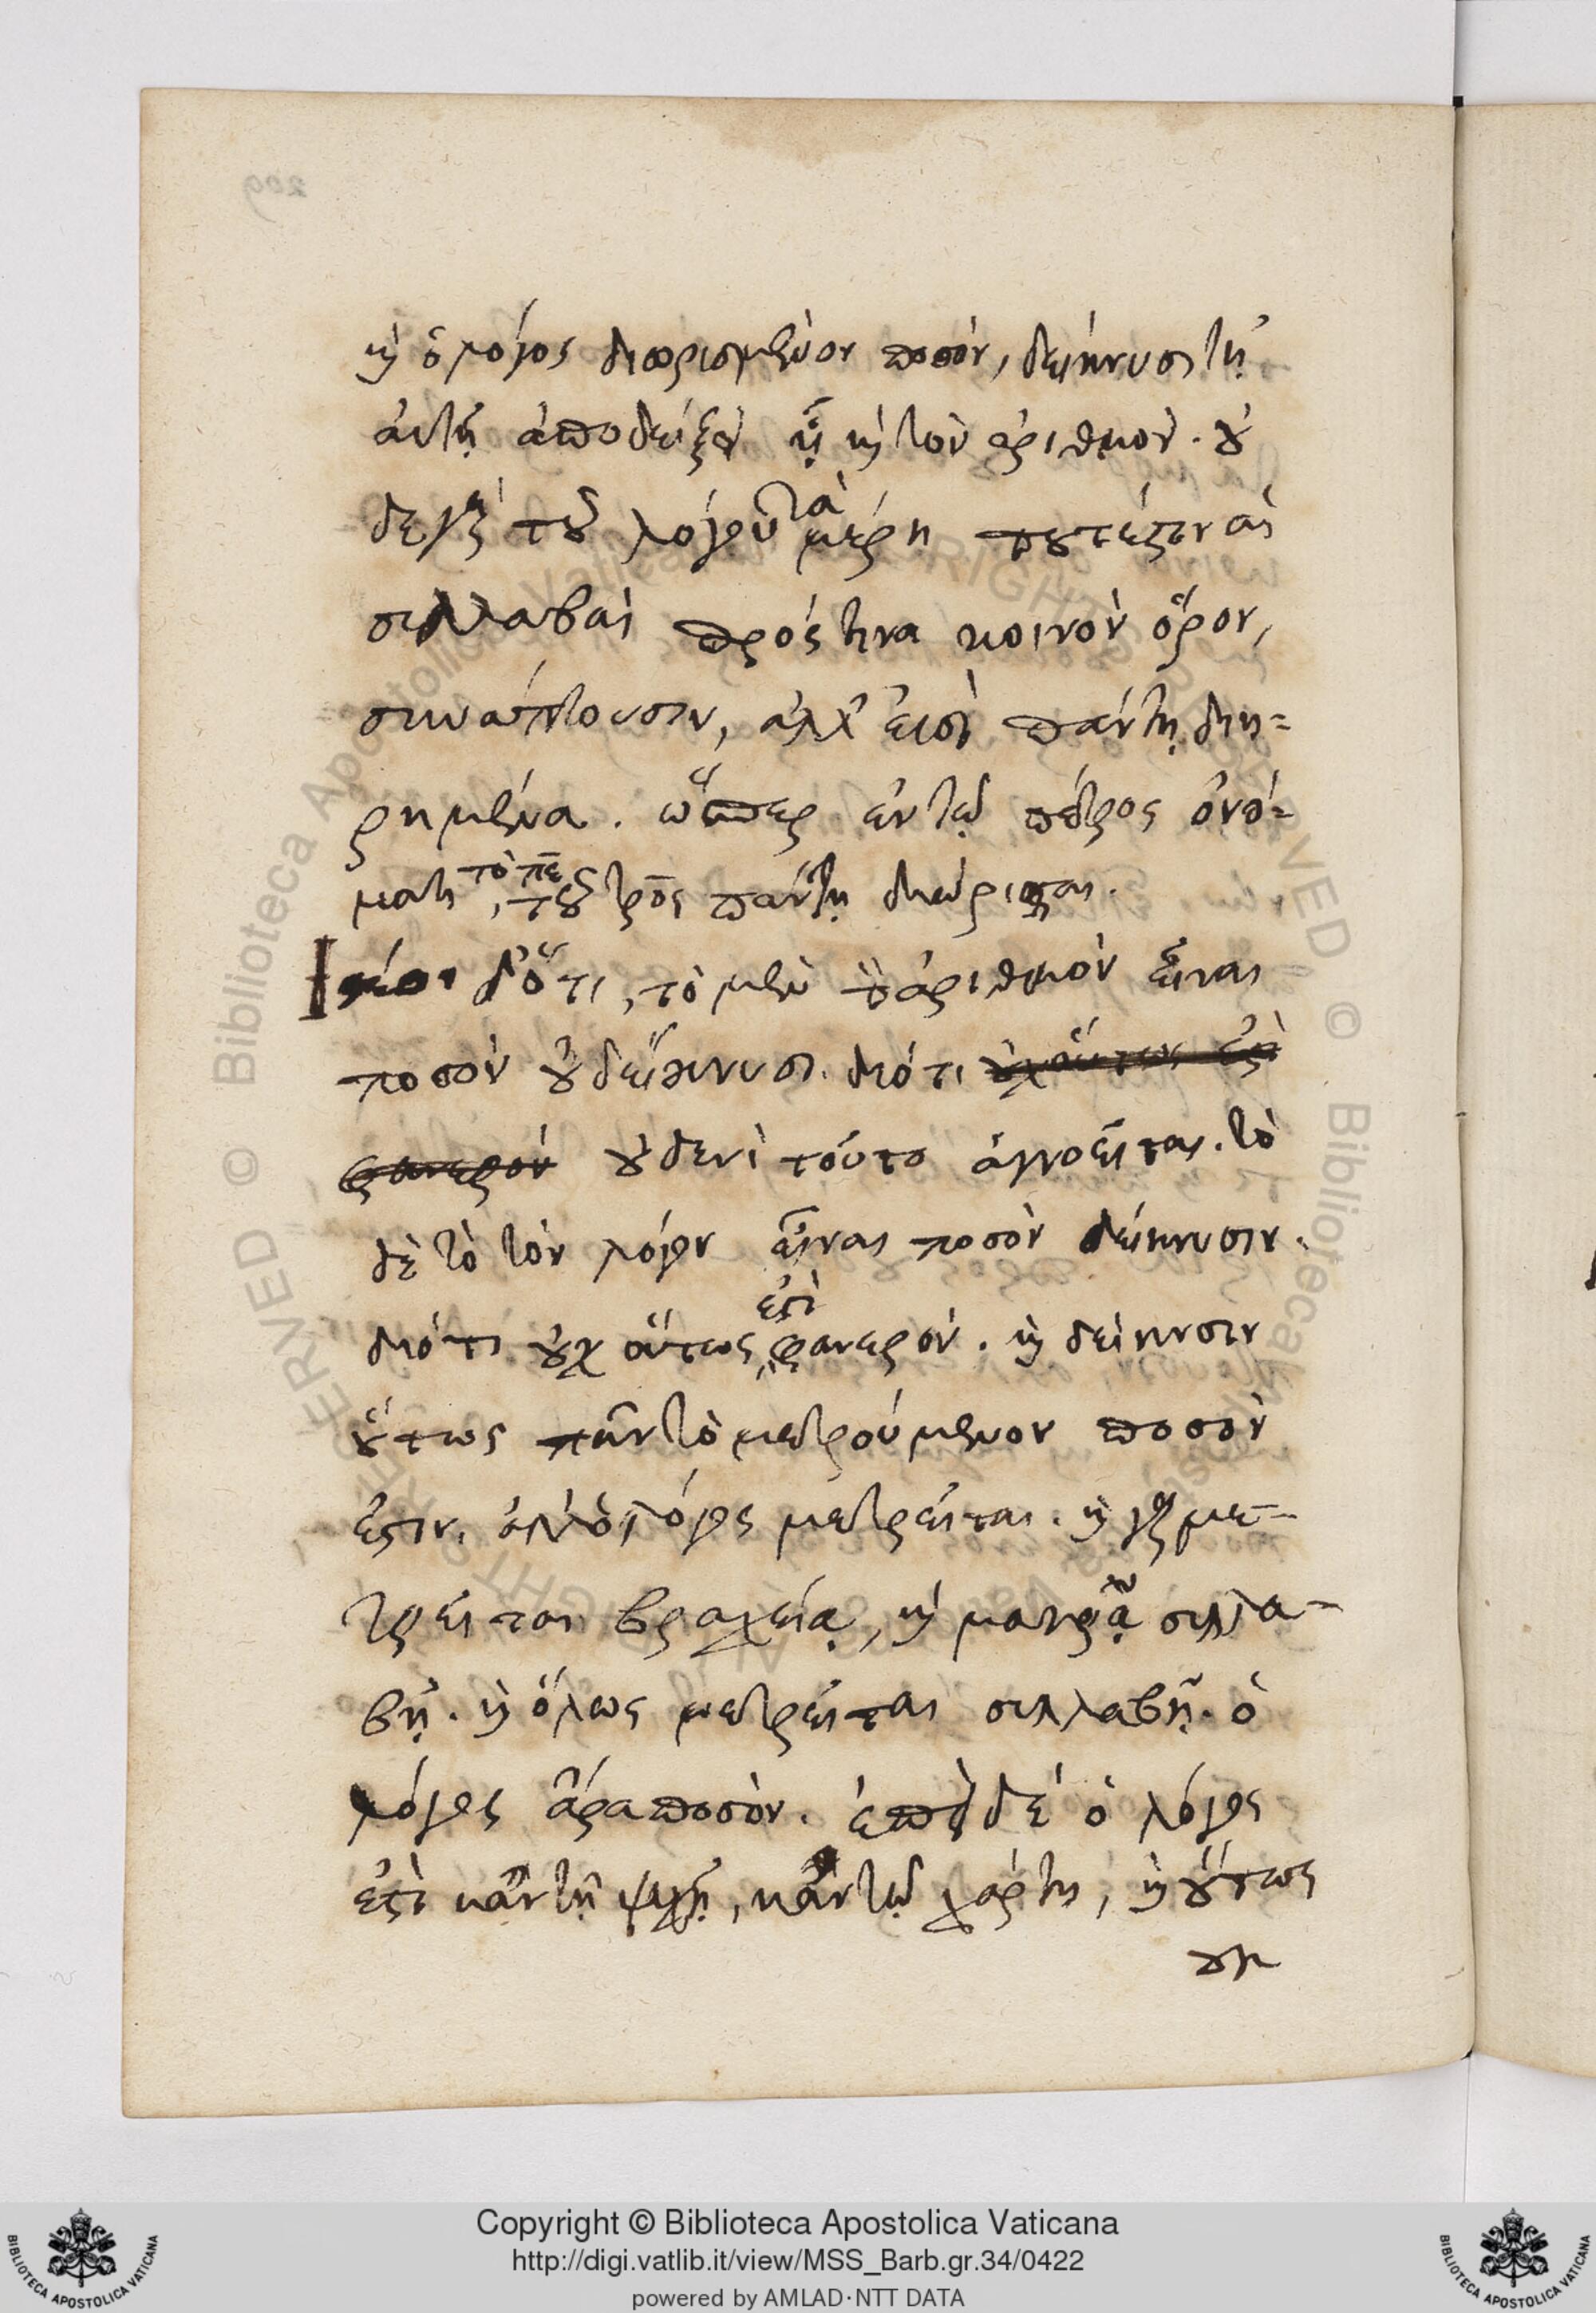 209
καὶ ὁ λόγος διωρισμένον ποσόν, δείκνυσι τῇ
αὐτῇ ἀποδείξει ᾗ καὶ τὸν ἀριθμόν. οὐ
δὲ γὰρ τοῦ λόγου τὰ μέρη τουτέστιν αἱ
συλλαβαὶ πρός τινα κοινὸν ὅρον,
συνάπτουσιν, ἀλλ' εἰσὶ πάντῃ διῃ=
ρημένα. ὥσπερ ἐν τῷ πέτρος ὀνό=
ματι, τὸ πε τοῦ τρος πάντῃ διώρισται.
δ' ὅτι, τὸ μὲν τὸν ἀριθμὸν εἶναι
ποσὸν οὐ δείκνυσι. διότι οὐχ οὕτως ἐστὶ
φανερὸν οὐδενὶ τοῦτο ἀγνοεῖται. τὸ
δὲ τὸ τὸν λόγον εἶναι ποσὸν δείκνυσιν.
διότι οὐχ οὕτως ἐστὶ φανερόν. καὶ δείκνυσιν
οὕτως πᾶν τὸ μετρούμενον ποσόν
ἐστιν. ἀλλ' ὁ λόγος μετρεῖται. καὶ γὰρ με-
τρεῖται βραχείᾳ, καὶ μακρᾷ συλλα-
βῇ. καὶ ὅλως μετρεῖται συλλαβῇ. ὁ
λόγος ἄρα ποσόν. ἐπεὶ δὲ ὁ λόγος
ἐστὶ κἀν τῇ ψυχῇ, κἀν τῷ χάρτῃ, καὶ οὕτως
Copyright © Biblioteca Apostolica Vaticana
http://digi.vatlib.it/view/MSS_Barb.gr.34/0422
powered by AMLAD·NTT DATA
BIBLIOTECA APOSTOLICA VATICANA
BIBLIOTECA APOSTOLICA VATICANA